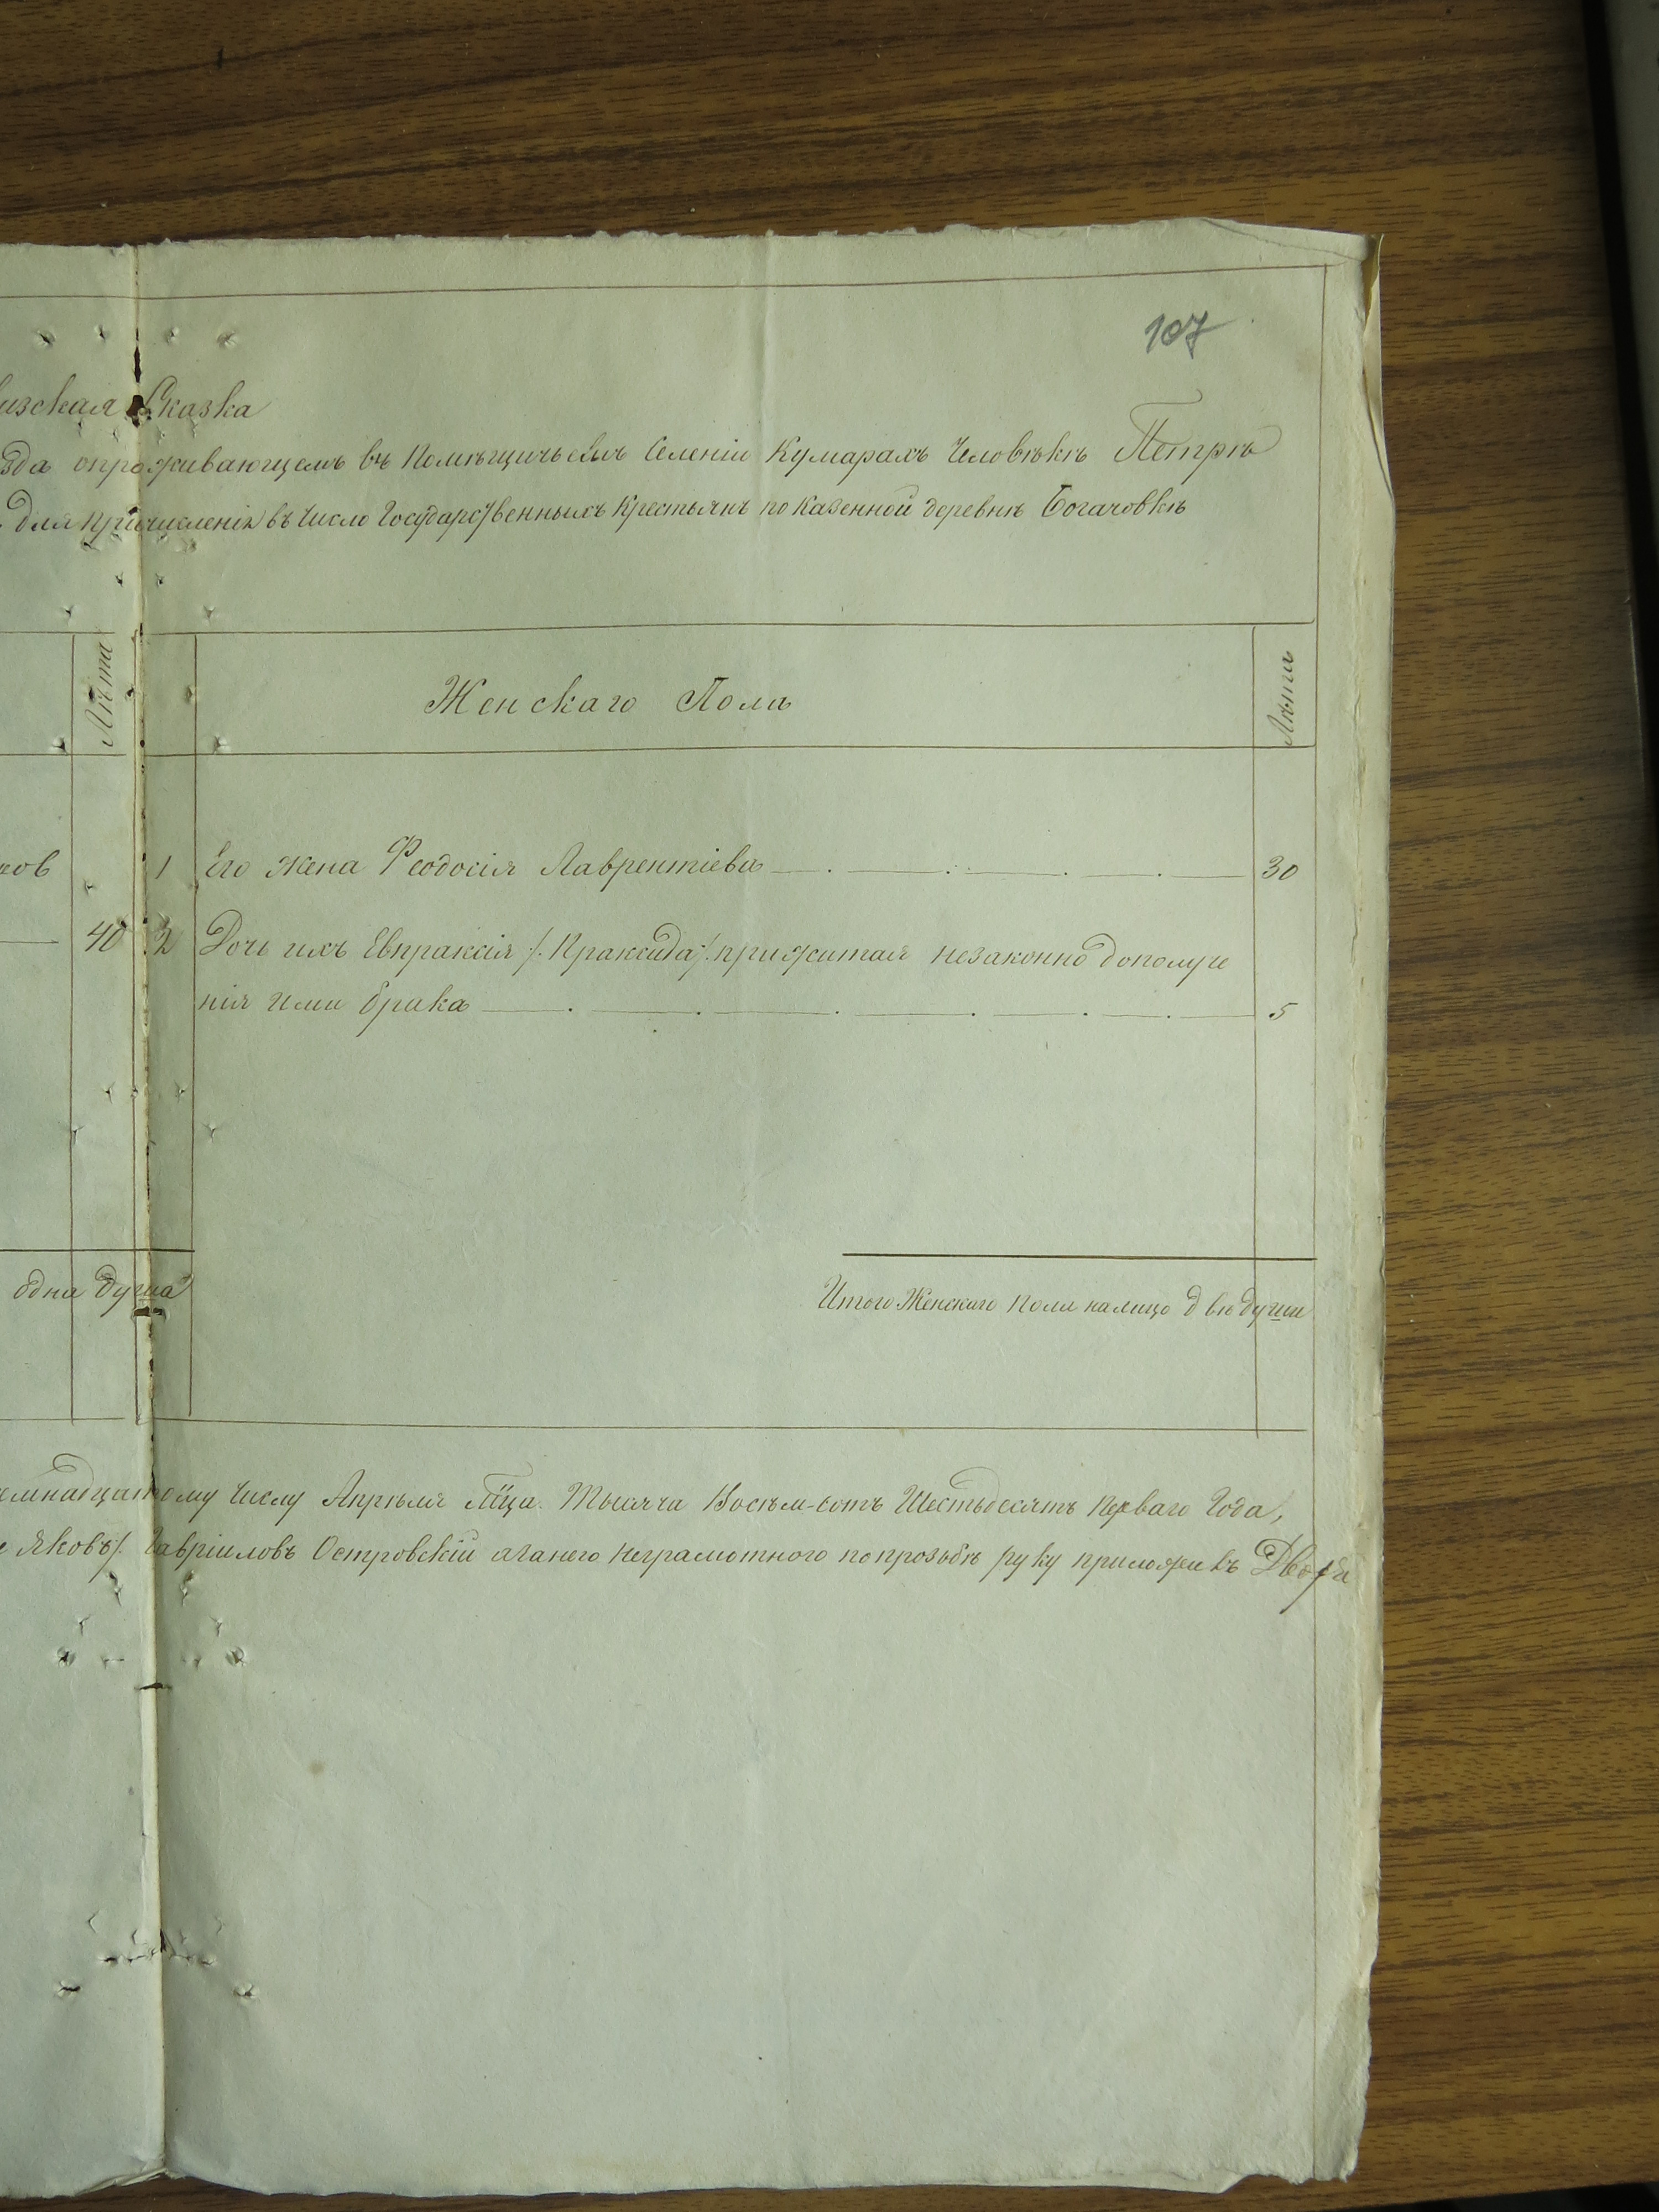 107
изская Сказка
зда опроживающемъ въ Помѣщичьемъ Селеніи Кумарахъ Человѣкѣ Петрѣ
для причисленія въ число Государственныхъ крестьянъ по казенной деревнѣ Богачовкѣ
Лѣта
Женскаго Пола
Лѣта
ков 1 Его жена Феодосія Лаврентіева 30
40 2 Дочь ихъ Евпраксія /: Праксида :/ прижитая незаконно дополуче
нія ими брака 5
одна душа
Итого Женскаго пола налицо двѣ души
емнадцатому числу Апрѣля М‑ца Тысяча Восѣм-сотъ Шестьдесятъ перваго Года,
Яковъ /. Гавріиловъ Островскій азанего неграмотного попрозьбѣ руку приложилъ